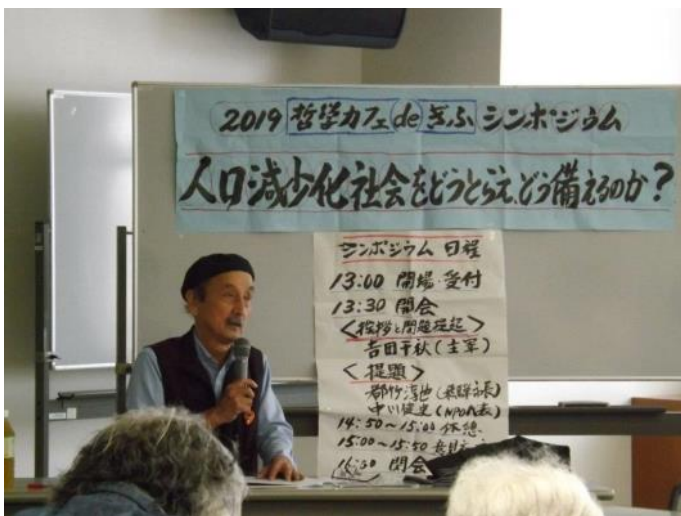 2019 哲学カフェ de ぎふ シンポジウム
人口減少化社会をどうとらえ、どう備えるのか?
シンポジウム 日程
13:00 開場・受付
13:30 開会
<挨拶と問題提起>
吉田千秋(主宰)
<提題>
都竹淳也(飛騨市長)
中川健史(NPO代表)
14:50~15:00 休憩
15:00~15:50 意見
16:30 閉会